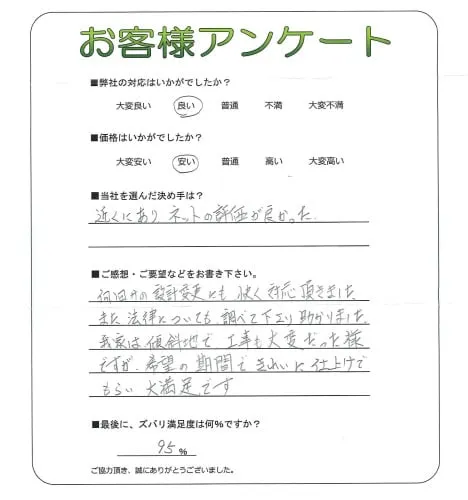 お客様アンケート
■弊社の対応はいかがでしたか?
大変良い 良い 普通 不満 大変不満
■価格はいかがでしたか?
大変安い 安い 普通 高い 大変高い
■当社を選んだ決め手は?
近くにあり ネットの評価が良かった.
■ご感想・ご要望などをお書き下さい。
何回かの設計変更にも 快く対応頂きました
また 法律についても 調べて下さり助かりました.
我家は傾斜地で 工事も大変だった様
ですが、希望の期間できれいに仕上げて
もらい 大満足です
■最後に、ズバリ満足度は何%ですか?
95 %
ご協力頂き、誠にありがとうございました。